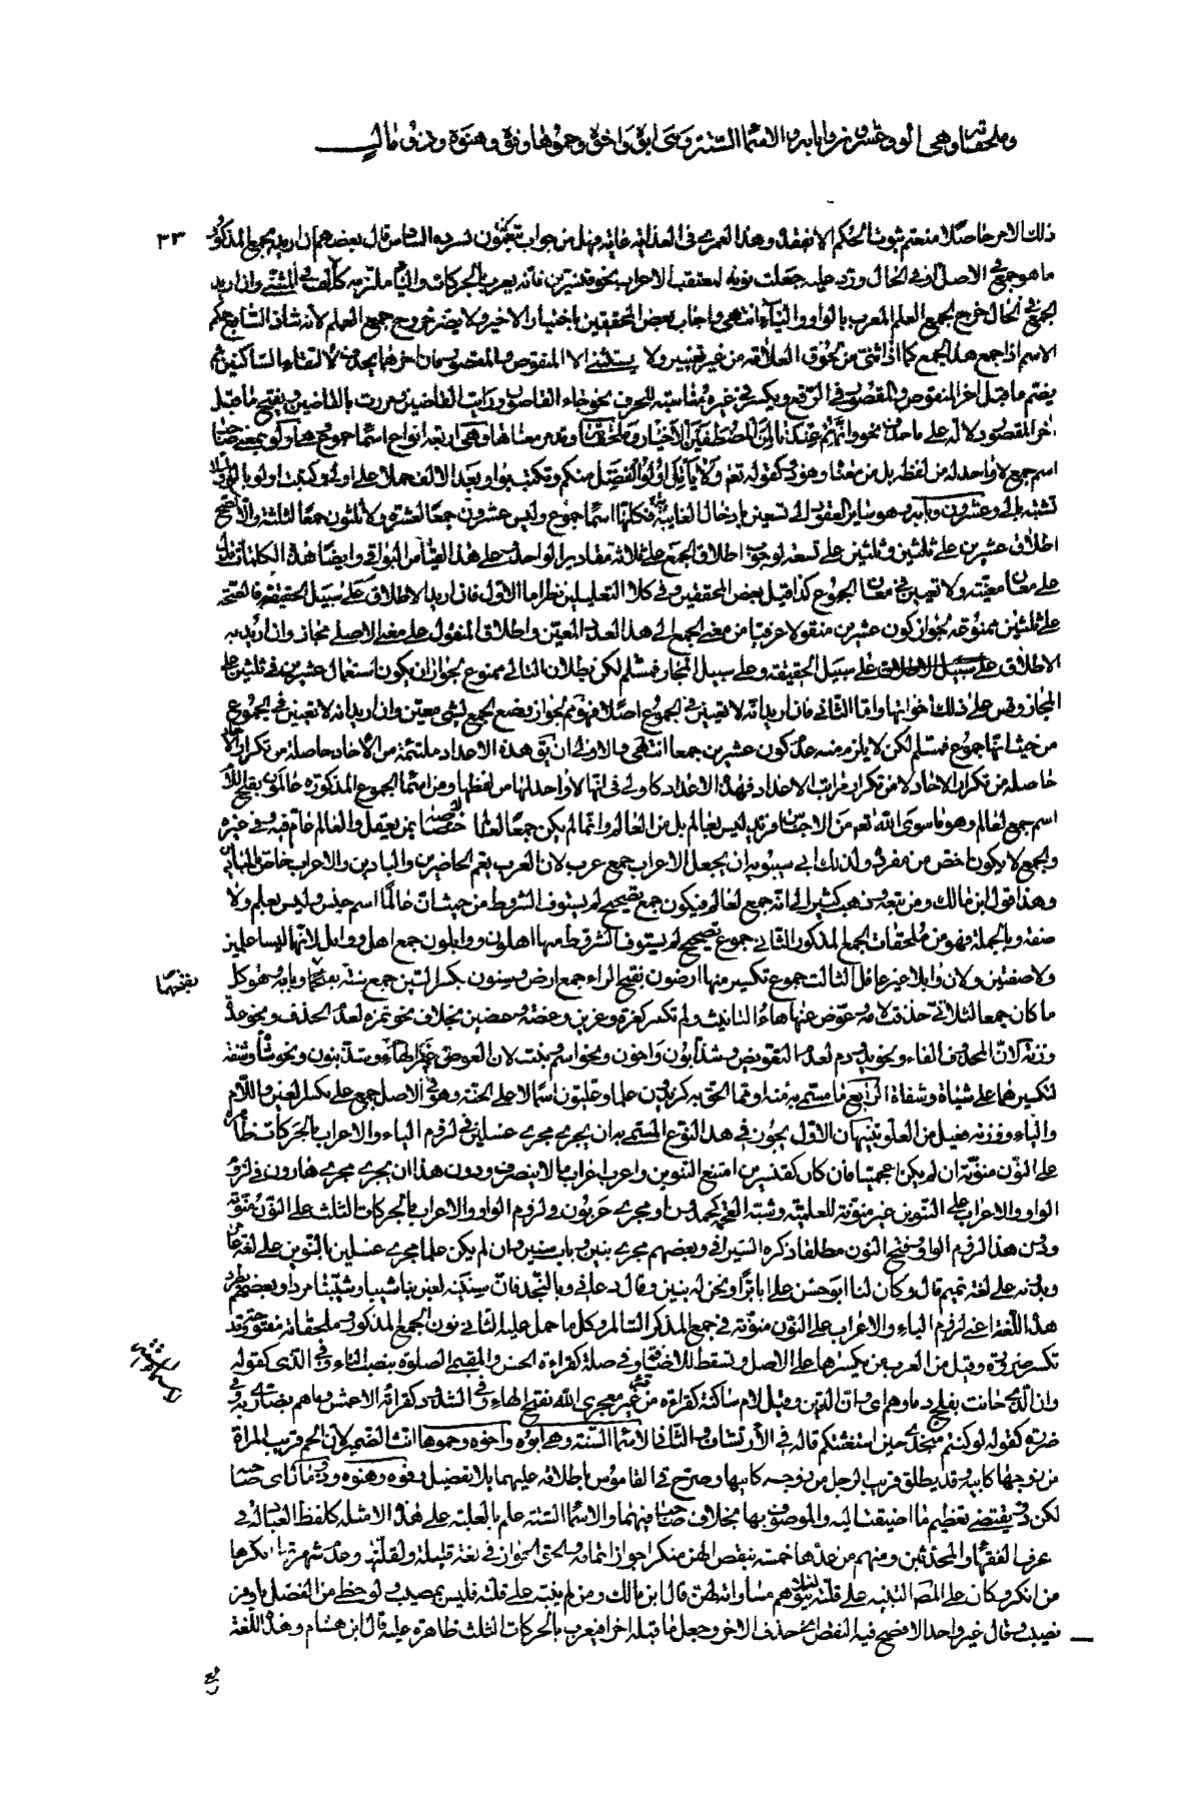 وملحقاته وهي اولو وعشرون وبابه والاسماء الستة وهي ابوه واخوه وحموها وفوه وهنوه وذو مال
٣٣
ذلك الامر حاصلا منعتم ثبوت الحكم الا نفقد وهذا لعمري في العذابة غاية قال بعضهم ان اريد بجمع المذكور
ما هو جمع في الاصل او في الحال ورد عليه جعلت نونه لمعتقب الاعراب نحو قنسرين فانه يعرب بالحركات والياء ملتزمة كالف في المثنى وان اريد
الجمع في الحال خرج الجمع العلم المعرب بالواو والياء انتهى واجاب بعض المحققين باختيار الاخير ولا يضر خروج جمع العلم لانه شاذ الشايع حكم
الاسم اذا جمع هذا الجمع كما اذا ثني من لحوق العلاقة من غير تغيير ولا يستثنى الا المنقوص والمقصور فان اخرهما يحذف لالتقاء الساكنين ثم
يضم ما قبل اخر المنقوص والمقصور في الرفع ويكسر في غيره لمناسبته للحرف نحو جاء القاضون ورايت القاضين ومررت بالقاضين ويفتح ما قبل
اخر المقصور دلالة على ما حذف نحو وانهم عندنا لمن المصطفين الاخيار وملحقاته وقد مر معناها وهي اربعة انواع اسماء جموع فمنها اولو بمعنى اصحاب
اسم جمع لا واحد له من لفظه بل من معناه وهو ذو كقوله تعالى ولا يأتل اولوا الفضل منكم وتكتب بواو بعد الالف حملا على اولي وكتبت اولي بالواو لئلا
تشتبه بالى وعشرون وبابه وهو ساير العقود الى تسعين بادخال الغاية فكلها اسماء جموع وليس عشرون جمعا لعشرة ولا ثلثون جمعا لثلثة والا لصح
اطلاق عشرين على ثلثين وثلثين على تسعة لوجوب اطلاق الجمع على ثلاثة مقادير الواحد وعلى هذا القياس البواقي وايضا هذه الكلمات تدل
على معان معينة ولا تعيين في معان الجموع كذا قيل بعض المحققين وفي كلا التعليلين نظر اما الاول فان اريد الاطلاق على سبيل الحقيقة فالصحة
على ثلثين ممنوعة لجواز كون عشرين منقولا عرفيا من معنى الجمع الى هذا العدد المعين واطلاق المنقول على معنى الاصلي مجاز وان اريد به
الاطلاق على سبيل الحقيقة وعلى سبيل المجاز فمسلم لكن بطلان التالي ممنوع لجواز ان يكون استعمال عشرين في ثلثين على
المجاز وقس على ذلك اخواتها واما الثاني فان اريد انه لا تعيين في الجموع اصلا فهو ثم لجواز وضع الجمع لشيء معين وان اريد انه لا تعيين في الجموع
من حيث انها جموع فمسلم لكن لا يلزم منه عدم كون عشرين جمعا انتهى والاولى ان يق هذه الاعداد ملتئمة من الآحاد حاصلة من تكرار الآحاد
حاصلة من تكرار الاحاد لا من تكرار مراتب الاعداد فهذه الاعداد كاولي في انها لا واحد لها من لفظها ومن اسماء الجموع المذكورة عالمون بفتح اللام
اسم جمع لعالم وهو ما سوى الله تعالى من الاجناس فزيد ليس بعالم بل من العالم وانما لم يكن جمعا لعالم لاختصاصه بمن يعقل والعالم عام فيه وفي غيره
والجمع لا يكون اخص من مفرده ولذلك ابى سيبويه ان يجعل الاعراب جمع عرب لان العرب يعم الحاضرين والبادين والاعراب خاص بالبادين
وهذا قول ابن مالك ومن تبعه وذهب كثير الى انه جمع لعالم فيكون جمع تصحيح لم يستوف الشروط من حيث ان عالما اسم جنس وليس بعلم ولا
صفة وبالجملة فهو من ملحقات الجمع المذكور الثاني جموع تصحيح لم يستوف الشروط منها اهلون ووابلون جمع اهل ووابل لانهما ليسا علمين
ولا صفتين ولان وابلا غير عاقل الثالث جموع تكسير منها ارضون بفتح الراء جمع ارض وسنون بكسر السين جمع سنة بفتحها وبابه وهو كل
بفتحها
ما كان جمعا لثلاثي حذفت لامه وعوض عنها هاء التانيث ولم تكسر كعزة وعزين وعضة وعضين بخلاف نحو تمرة لعدم الحذف ونحو عدة
وزنة لان المحذوف الفاء ونحو يد ودم لعدم التعويض وشذ ابون واخون ونحو اسم وبنت لان العوض غير الهاء وشذ بنون ونحو شاة وشفة
لتكسيرهما على شياه وشفاه الرابع ما سمي به منه او مما الحق به كزيدون علما وعليون اسما لاعلى الجنة وهو في الاصل جمع على بكسر العين واللام
والياء ووزنه فعيل من العلو تنبيهان الاول يجوز في هذا النوع المسمى به ان يجري مجرى غسلين في لزوم الياء والاعراب بالحركات ظاهرة
على النون منونة ان لم يكن اعجميا فان كان كقنسرين امتنع التنوين واعرب اعراب ما لا ينصرف ودون هذا ان يجري مجرى هارون في لزوم
الواو والاعراب على النون غير منونة للعلمية وشبه العجمة كحمدون او مجرى عربون في لزوم الواو والاعراب بالحركات الثلث على النون منونة
ودون هذا لزوم الواو وفتح النون مطلقا ذكره السيرافي وبعضهم مجري بنين وباب سنين وان لم يكن علما مجرى غسلين بالتنوين على لغة عامر
وبدونه على لغة تميم قال وكان لنا ابو حسن علي ابا برا ونحن له بنين وقال دعاني من نجد فان سنينه لعبن بنا شيبا وشيبننا مردا وبعضهم يطرد
هذا اللغة اعني لزوم الياء والاعراب على النون منونة في جمع المذكر السالم وكل ما حمل عليه الثاني نون الجمع المذكور وملحقاته مفتوحة وقد
تكسر ضرورة وقيل من العرب من يكسرها على الاصل وتسقط للاضافة وفي صلة كقراءة الحسن والمقيمي الصلوة بنصب التاء وفي الذي كقوله
وان الذي حانت بفلج دماؤهم اي وان الذين وقبل لام ساكنة كقراءة من غير معجزي الله بفتح الهاء وفي الشذوذ كقراءة الاعمش وما هم بضاري به وفي
ضرورة كقوله لو كنتم منجدي حين استغثتكم قاله في الارتشاف والثالث الاسماء الستة وهي ابوه واخوه وحموها انث الضمير لان الحم قريب المرأة
من زوجها كابيه وقد يطلق قريب الرجل من زوجه كابيها وصرح في القاموس باطلاقه عليهما بلا تفضيل وفوه وهنوه وذو مال اي صاحب
لكن ذو يقتضي تعظيم ما اضيفت اليه والموصوف بها بخلاف صاحب فيهما والاسماء الستة علم بالغلبة على هذه الامثلة كلفظ العبادلة في
عرف الفقهاء والمحدثين ومنهم من عدها خمسة بنقص الهن منكرا جواز اتمامه والحق الجواز في لغة قليلة ولقلته وعدم شهرته انكرها
من انكر وكان على المص التنبيه على قلته لئلا يتوهم مساواته لهن قال ابن مالك ومن لم ينبه على قلته فليس بمصيب ولو حظ من الفضل باوفر
نصيب وقال غير واحد الافصح فيه النقص اي حذف الاخر وجعل ما قبله اخرا فيعرب بالحركات الثلث ظاهرة عليه قال ابن هشام وهذه اللغة